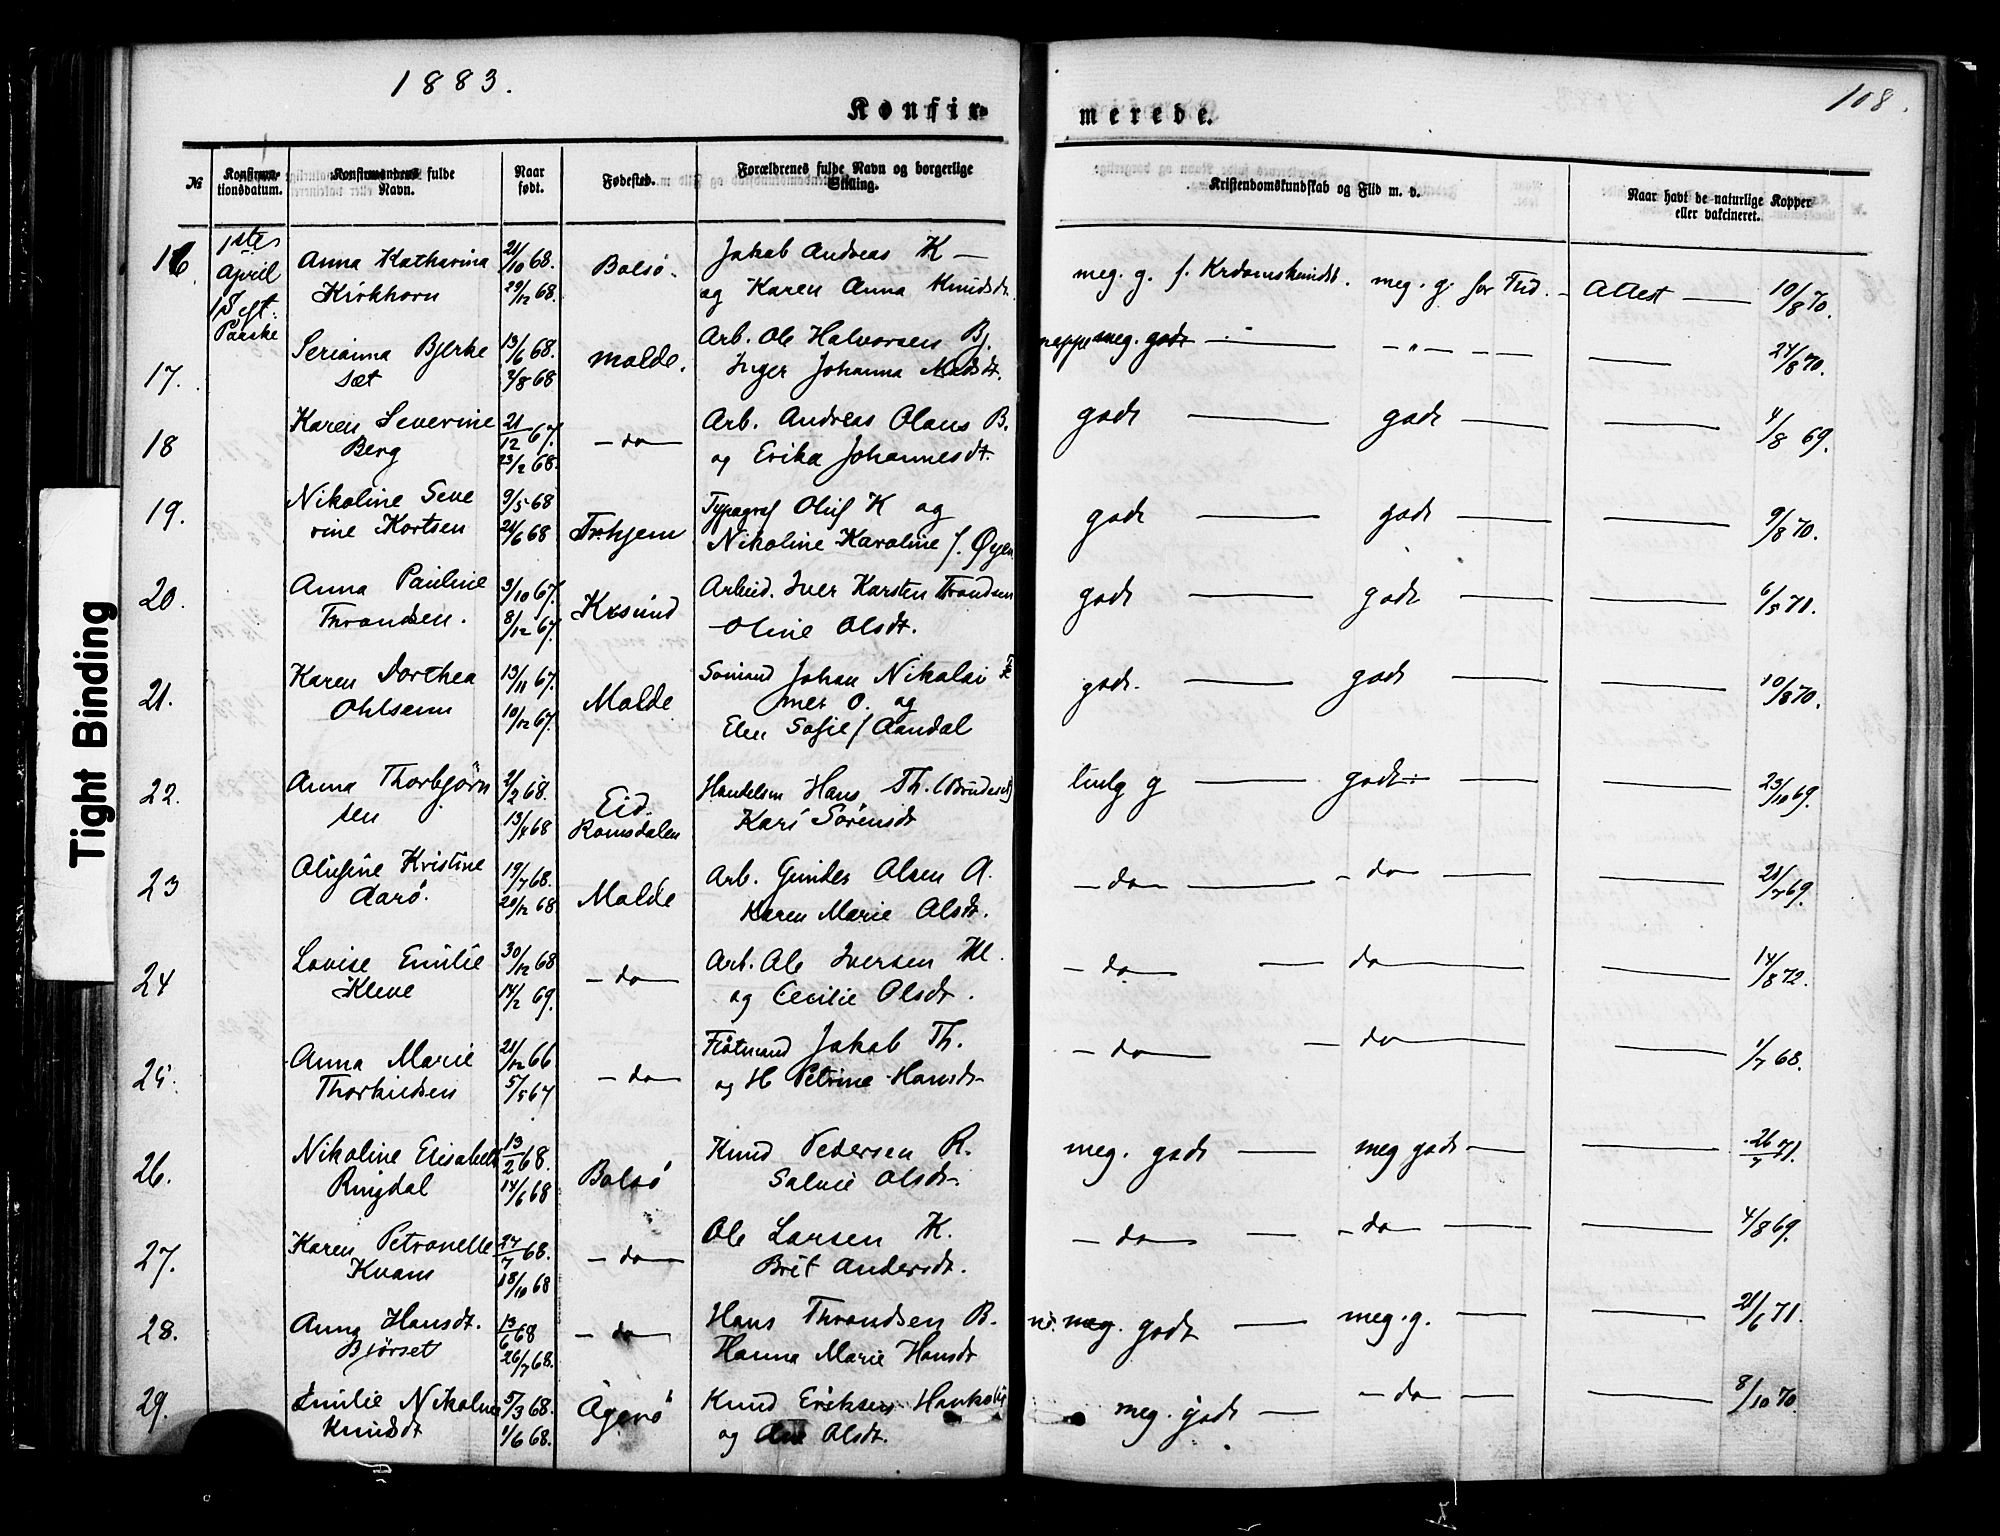 1883.
108.
Konfir- merede.
№
Konfirma-
tionsdatum.
Konfirmandens fulde
Navn.
Naar
født.
Fødested.
Forældrenes fulde Navn og borgerlige
Stilling.
Kristendomskundskab og Flid m. v.
Naar havt de naturlige Kopper
eller vakcineret.
1ste April
Paaske
16. Anna Katharina 21/10 68. Bolsø. Jakob Andreas K — meg. g. f. Krdomskundsk. meg. g. for Flid. - Attest — 10/8 70.
Kirkhorn 29/12 68. og Karen Anna Knudsdt.
17. Serianna Bjerke 13/6 68. Molde. Arb. Ole Halvorsen Bj. neppe meg. godt — - " - — 24/8 70.
sæt 2/8 68 Inger Johanna Madsdt.
18 Karen Severine 21/12 67. - do - Arb. Andreas Olaus B. godt — godt — 4/8 69.
Berg 23/2 68. og Erika Johannesdt.
19. Nikoline Seve 9/5 68 Trhjem Typograf Oluf K og godt — godt — 9/8 70.
rine Kortsen 21/6 68 Nikoline Karoline f. Øyen
20. Anna Pauline 3/10 67. Krsund Arbeid. Iver Karsten Trondsen godt — godt — 6/5 71.
Throndsen. 8/12 67. Oline Olsdt.
21. Karen Dorthea 13/11 67. Molde Sømand Johan Nikolai godt. — godt — 10/8 70.
Ohlsenn 10/12 67. mer O. og
Elen Sofie f Aandal
22. Anna Thorbjørn 21/2 68. Eid. Handelsm Hans Th. godt — 23/10 69.
sen 13/4 68 Romsdalen Kari Sørensdt
23 Olufine Kristine 19/7 68. Molde Arb. Gunder Olsen A. - do - - do - 21/7 69.
Aarø. 20/12 68 Karen Marie Olsdt.
24 Lovise Emilie 30/12 68 - do - Arb. Ole Iversen Kl. - do - - do - 14/8 72.
Kleve 14/2 69. og Cecilie Olsdt.
25. Anna Marie 21/12 66 - do - Fløtmand Jakob Th. - do - - do - 1/7 68.
Thorkildsen 5/5 67 og H Petrine Hansdt-
26. Nikoline Elisabeth 13/2 68. Bolsø Knud Pedersen R. meg. godt — meg godt — 26/7 71.
Ringdal 14/6 68 Salvie Olsdt-
27. Karen Petronelle 27/7 68. - do - Ole Larsen K. - do - - do - 4/8 69.
Kvam 18/10 68 Brit Andersdt.
28. Anna Hansdt. 13/6 68 - do - Hans Throndsen B. meg. godt — meg. g. — 21/6 71.
Bjørset 26/7 68. Hanna Marie Hansdt
29. Emilie Nikoline 5/3 68. Agerø Knud Eriksen meg. godt — - do - — 8/10 70.
Knudsdt 1/6 68. og Ane Olsdt.
Tight Binding